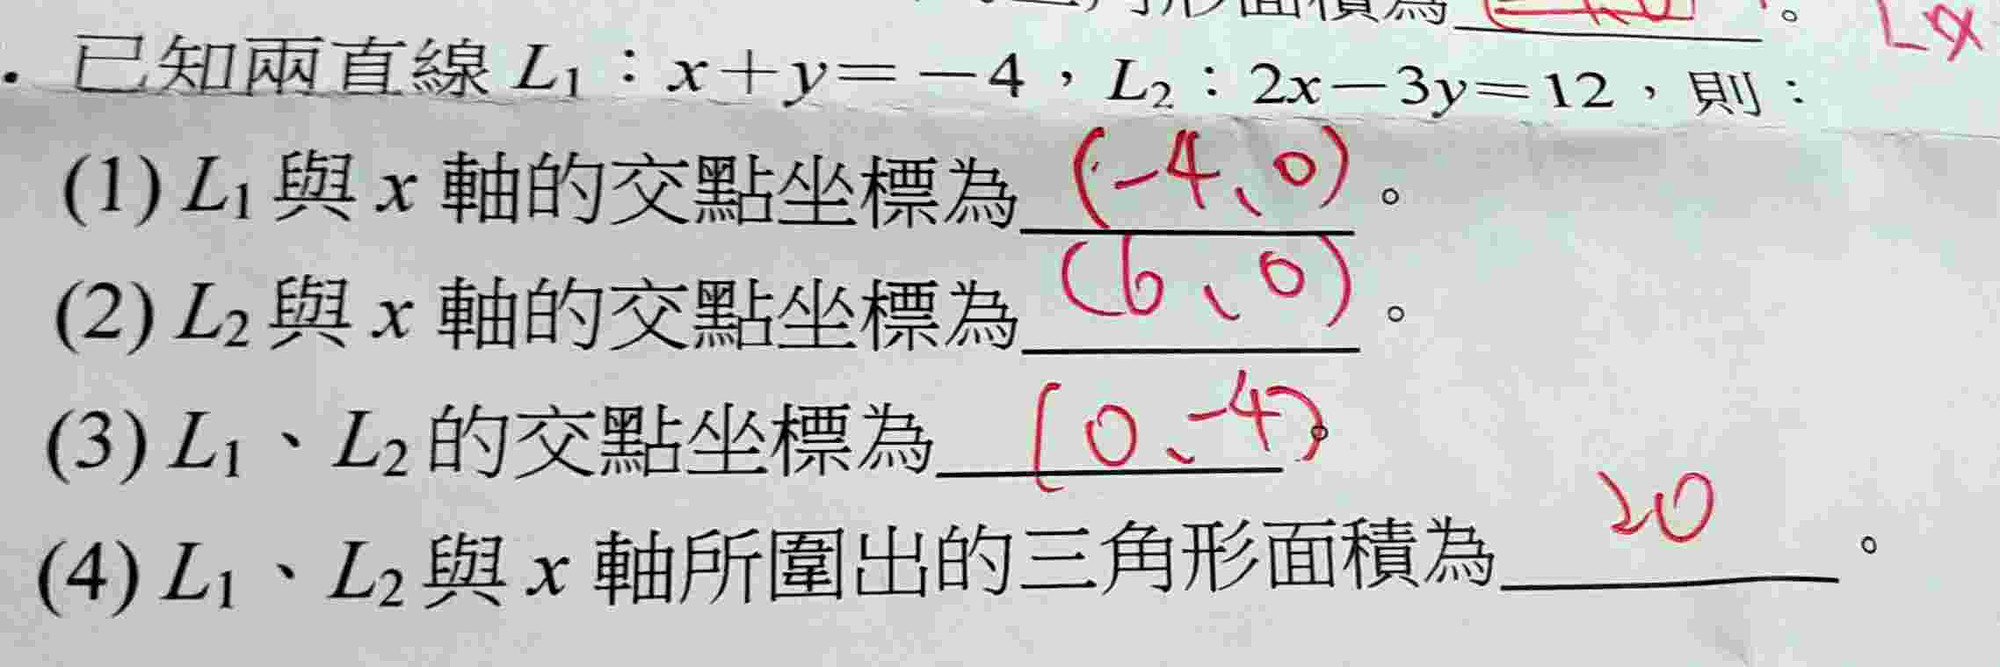 角形面積為 。
. 已知兩直線 L₁：x＋y＝－4，L₂：2x－3y＝12，則：
(1) L₁ 與 x 軸的交點坐標為 (-4、0) 。
(2) L₂ 與 x 軸的交點坐標為 (6、0) 。
(3) L₁、L₂ 的交點坐標為 (0、-4) 。
(4) L₁、L₂ 與 x 軸所圍出的三角形面積為 20 。